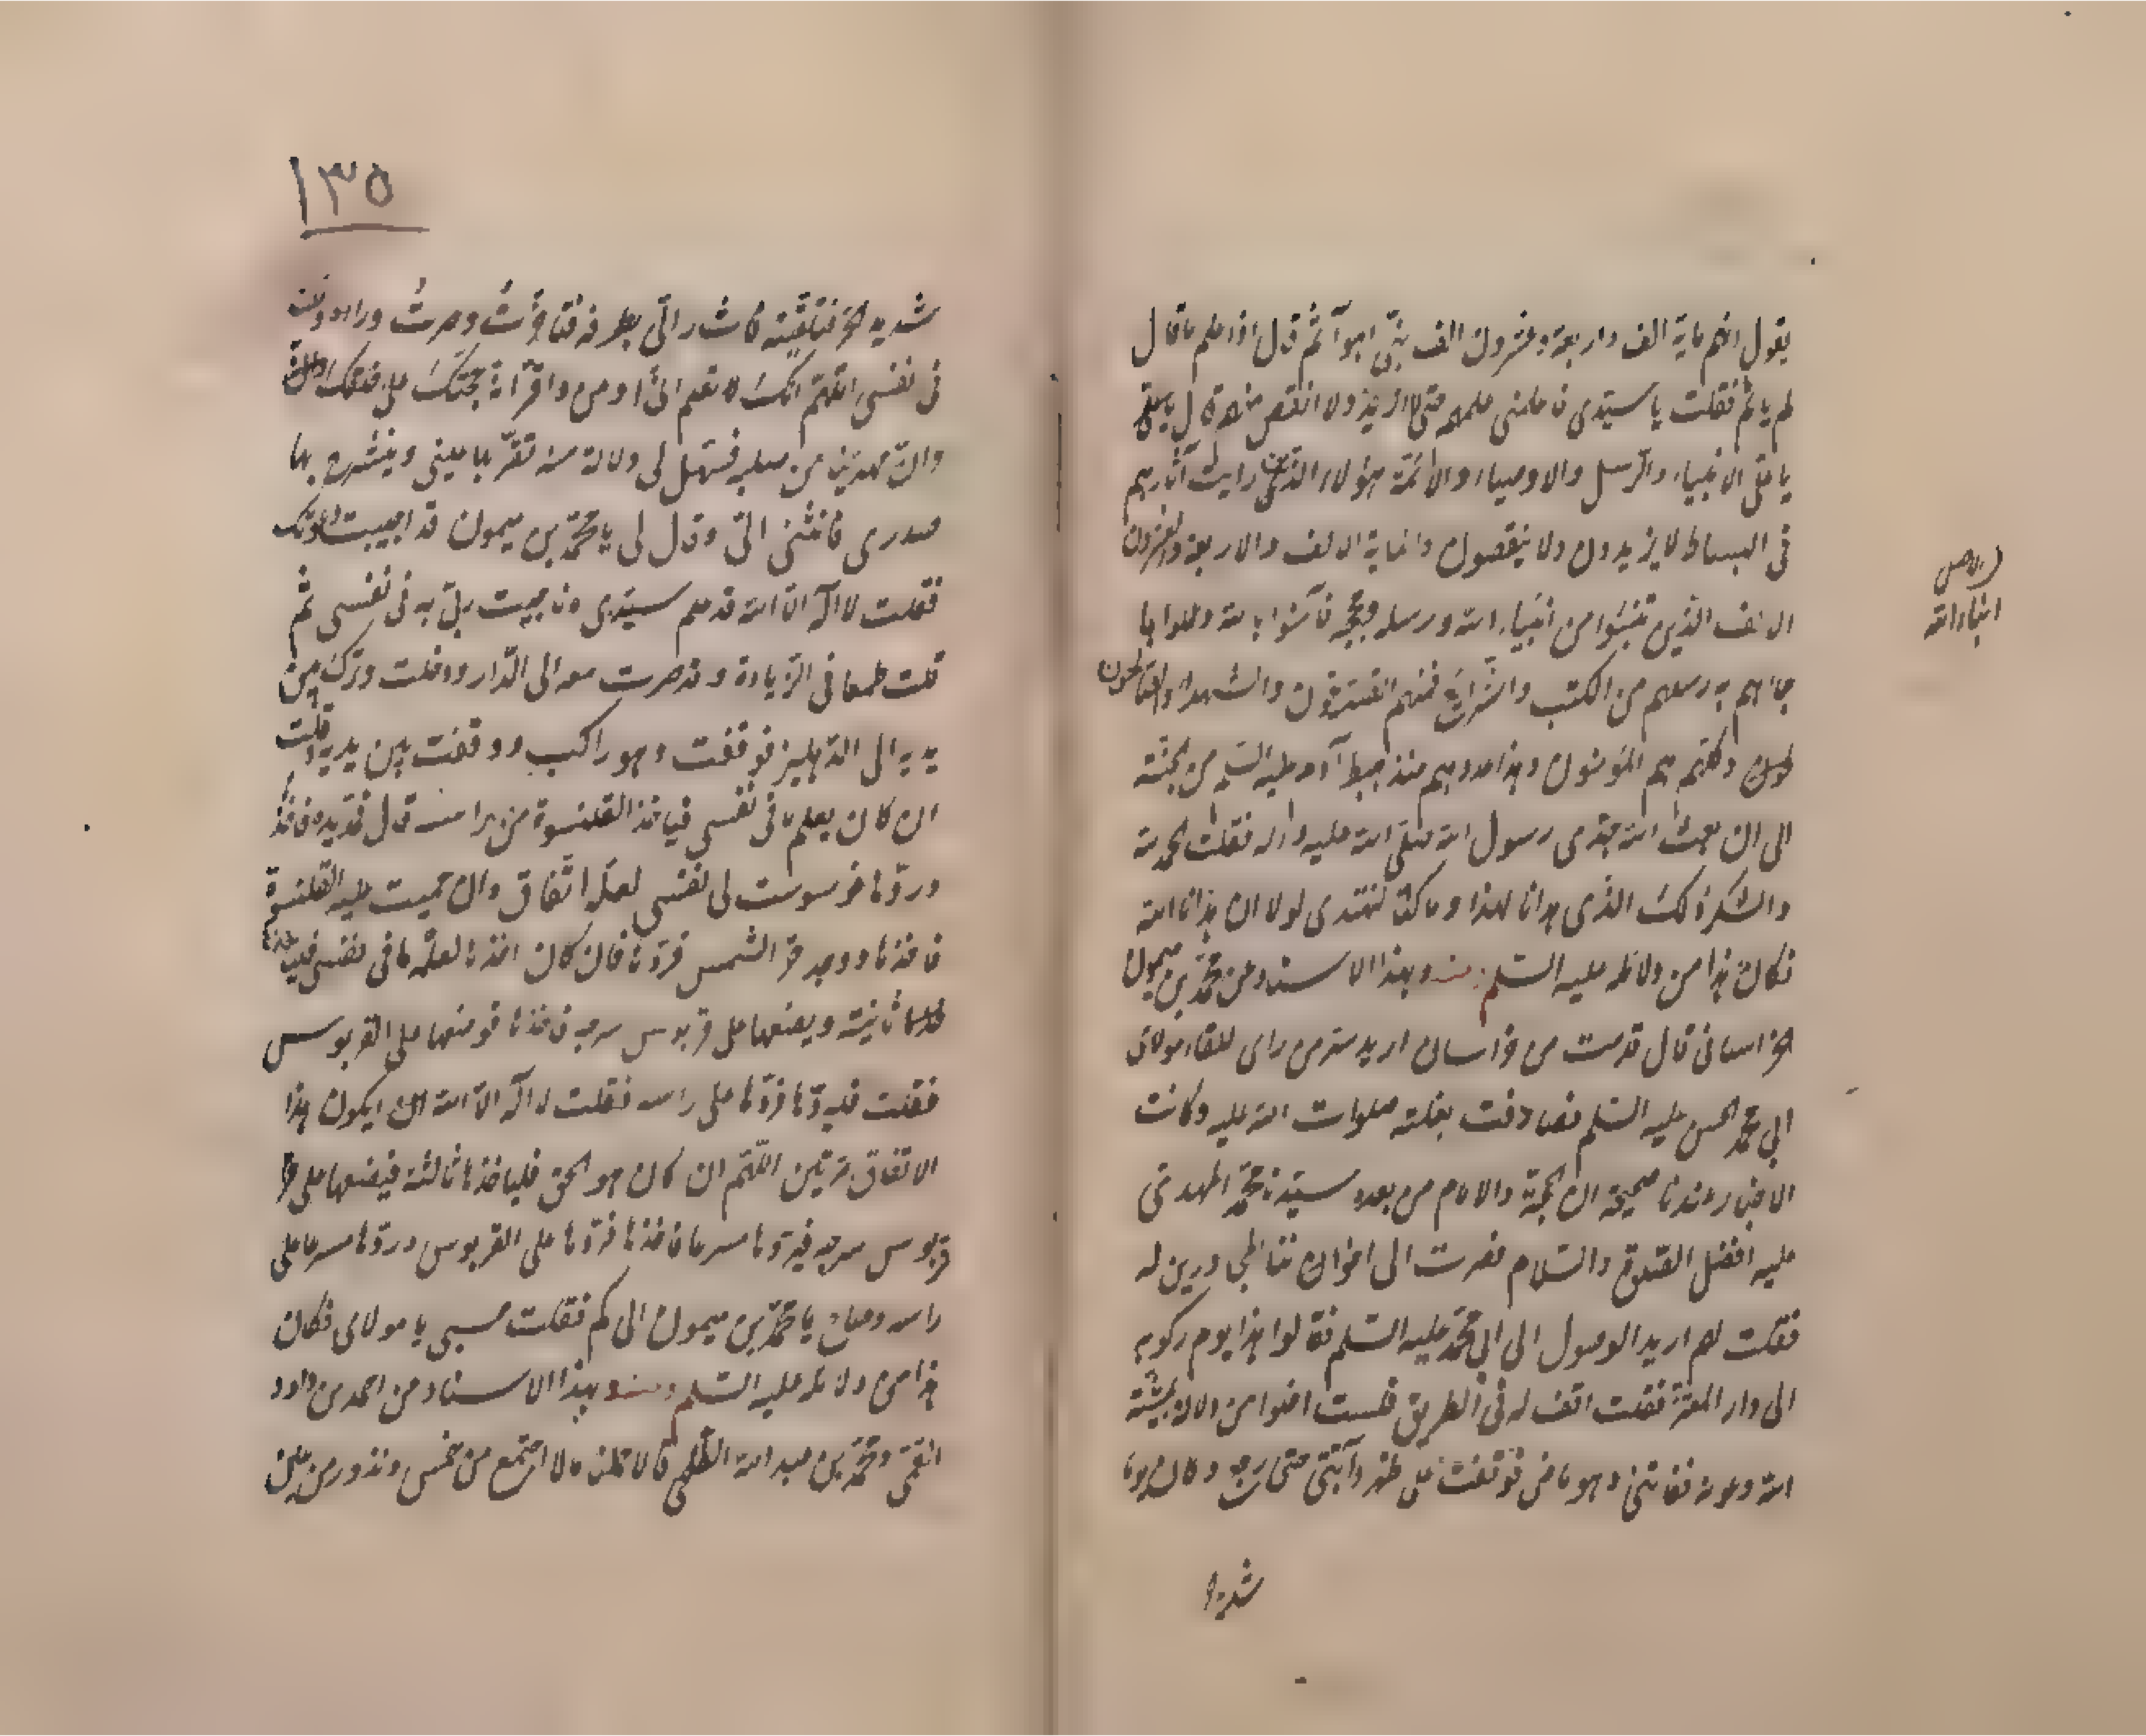 يقول انهم ماية الف واربعة وعشرون الف نبي اهو آثم قال اذا علم ما قال
لم ياثم فقلت يا سيدي فاعلمني علمهم حتى لا ازيد ولا انقص منهم قال يا علي
يا علي الانبياء والرسل والاوصياء والائمة هؤلاء الذين رايت آثارهم
في البساط لا يزيدون ولا ينقصون والماية الالف والاربعة والعشرون
الالف الذين تنبئوا من انبياء الله ورسله وحججه فآمنوا بالله وعملوا بما
جاءهم به رسلهم من الكتب والشرايع فمنهم الصديقون والشهداء والصالحون
وكلهم هم المؤمنون وهذا عددهم منذ هبط آدم عليه السلم من الجنة
الى ان بعث الله جدي رسول الله صلى الله عليه واله فقلت الحمد لله
والشكر لك الذي هدانا لهذا وما كنا لنهتدي لولا ان هدانا الله
فكان هذا من دلائله عليه السلم وعنه وبهذا الاسناد وعن محمد بن ميمون
الخراساني قال قدمت من خراسان اريد سر من راى للقاء مولاي
ابي محمد الحسن عليه السلم فصادفت بغلته صلوات الله عليه وكانت
الاخبار عندنا صحيحة ان الحجة والامام من بعده سيدنا محمد المهدي
عليه افضل الصلوة والسلام فصرت الى اخوان لنا
فقلت لهم اريد الوصول الى ابي محمد عليه السلم فقالوا هذا يوم ركوبه
الى دار المعتز فقلت اقف له في الطريق فلست اخلوا من دلالة بمشية
الله وعونه ففاتني وهو ماض فوقفت على ظهر دابتي حتى رجع وكان يوما
شديد
ابناء الله
١٣٥
شديد الحر فتلقيته فاشار الي بطرفه فتاخرت وصرت وراءه وقلت
في نفسي اللهم انك تعلم اني اومن واقر بانه حجتك على خلقك
وان مهدينا من صلبه فسهل لي دلالة منه تقر بها عيني وينشرح بها
صدري فانثنى الي وقال لي يا محمد بن ميمون قد اجيبت دعوتك
فقلت لا اله الا الله قد علم سيدي ما ناجيت ربي به في نفسي ثم
قلت طمعا في الزيادة وقد صرت معه الى الدار ودخلت وتركني بين
يديه الى الدهليز فوقفت وهو راكب ووقفت بين يديه وقلت
ان كان يعلم ما في نفسي فياخذ القلنسوة من راسه قال فمد يده فاخذ
وردها فوسوست لي نفسي لعله اتفاق وان حميت عليه القلنسوة
فاخذها ووجد حر الشمس فردها فان كان اخذها لعلمه بما في نفسي فلياخذها
ثانية ويضعها على قربوس سرجه فاخذها فوضعها على القربوس
فقلت فليردها فردها على راسه فقلت لا اله الا الله ايكون هذا
الاتفاق مرتين اللهم ان كان هو الحق فلياخذها ثالثة فيضعها على
قربوس سرجه فيردها مسرعا فاخذها فردها على القربوس وردها مسرعا على
راسه وصاح يا محمد بن ميمون الى كم فقلت حسبي يا مولاي فكان
هذا من دلائله عليه السلم وعنه وبهذا الاسناد وعن احمد بن داود
القمي ومحمد بن عبد الله الطلحي قالا حملنا ما لا اجتمع من خمس ونذور من بين